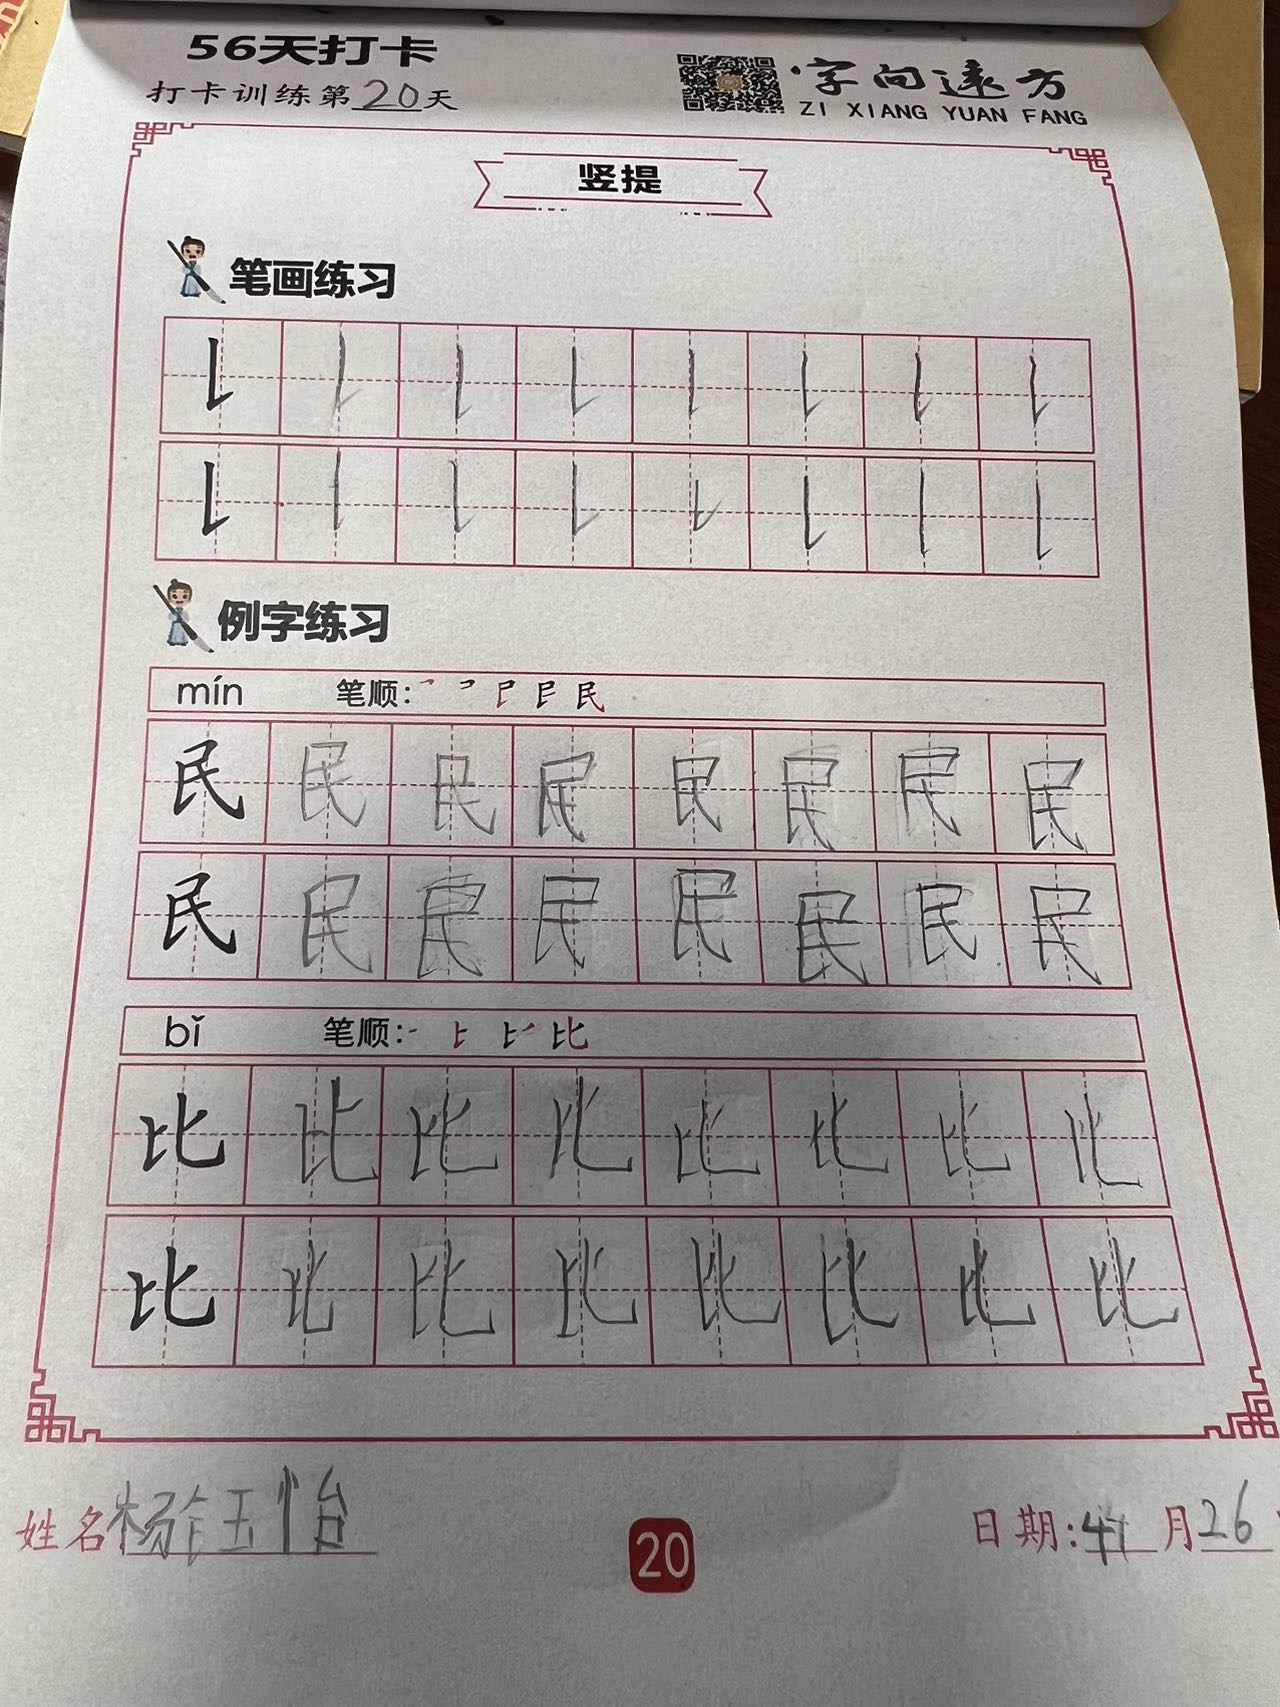 56天打卡
打卡训练第20天
字向远方
ZI XIANG YUAN FANG
竖提
笔画练习
例字练习
mín 笔顺:
民 民 民 民 民 民 民 民
民 民 民 民 民 民 民 民
bǐ 笔顺:
比 比 比 比 比 比 比 比
比 比 比 比 比 比 比 比
姓名 杨钰怡
日期: 月26
20